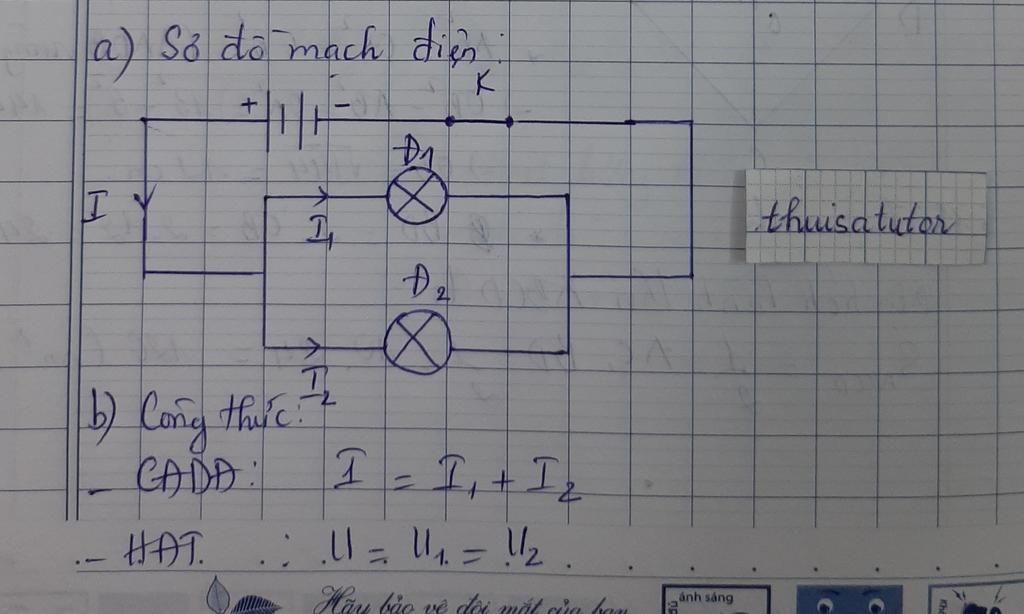 a) Sơ đồ mạch điện:
+ - K
Đ1
I
I1
thuisatutor
Đ2
I2
b) Công thức:
- CĐDĐ: I = I1 + I2
- HĐT : U = U1 = U2
Hãy bảo vệ đôi mắt của bạn
ánh sáng